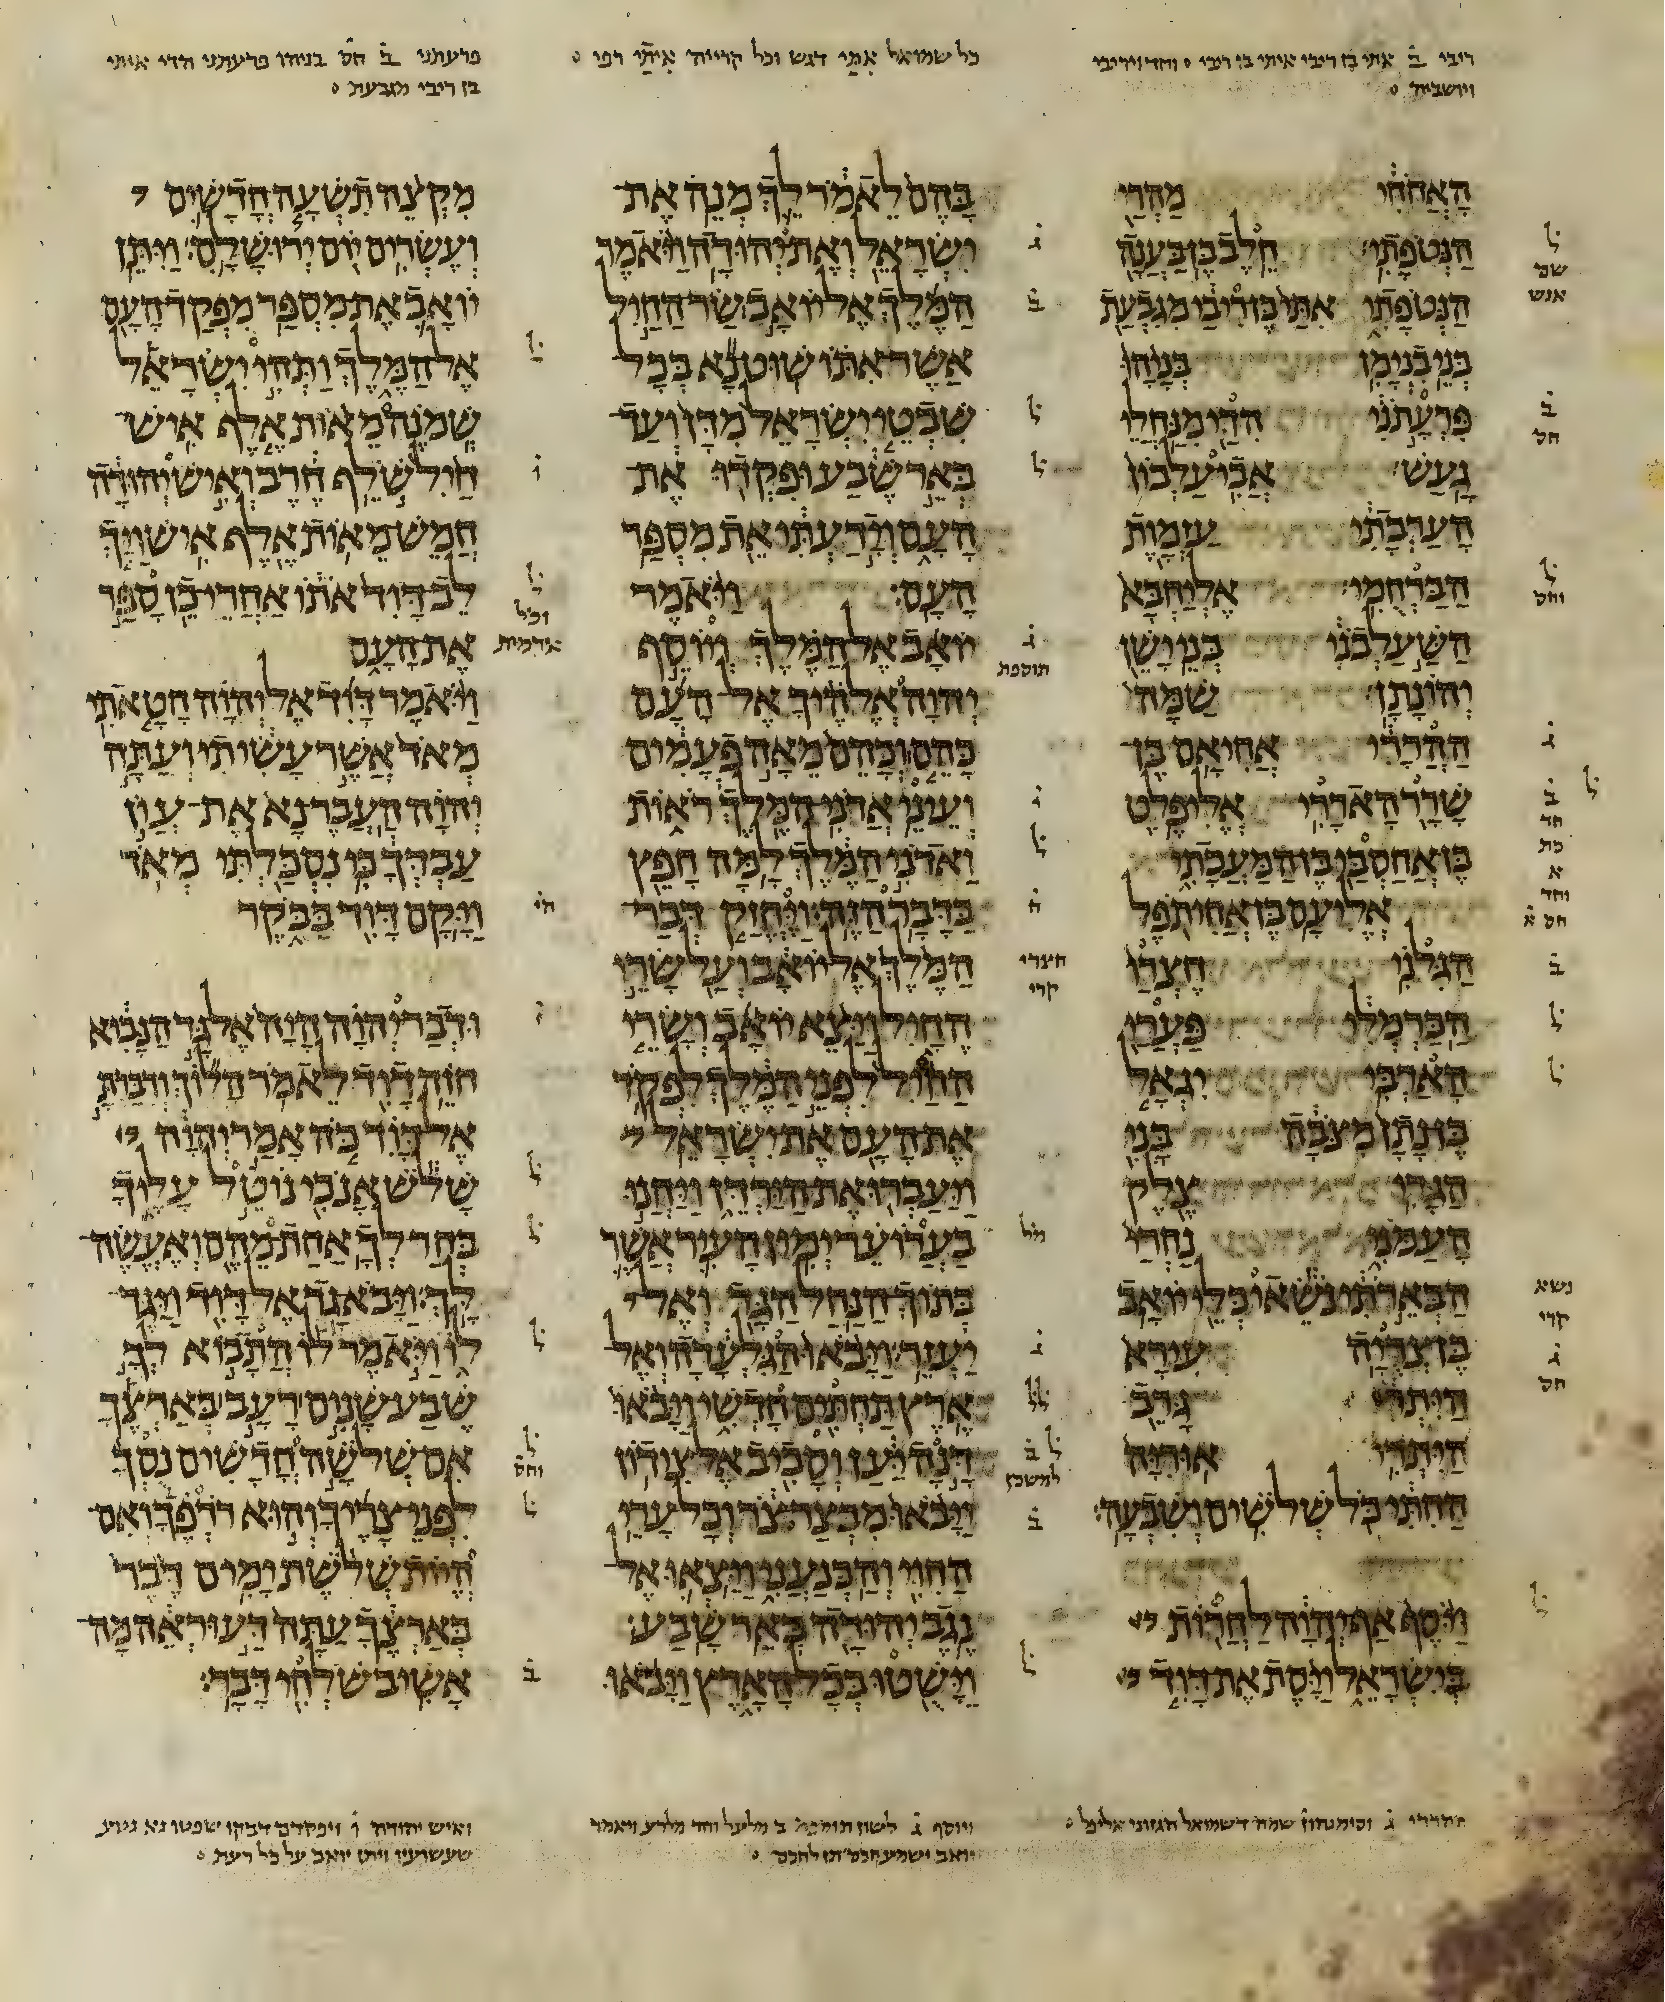 ריבי ב֗ אתי בן ריבי איתי בן ריבי ׄ וחד ויריבי
ויושביה ׄ
כל שמואל אתי דגש וכל קרייה איתי רפי ׄ
פרעתני ב֗ חס֗ בניהו פרעתני הדי איתי
בן ריבי מגבעת ׄ
האחחי מהרי
הנטפתי׃ חלב בן בענה
הנטפתי אתי בן ריבי מגבעת
בני בנימן׃ בניהו
פרעתני הדי מנחלי
געש׃ אבי עלבון
הערבתי עזמות
הברחמי׃ אליחבא
השעלבני בני ישן
יהונתן׃ שמה
ההררי אחיאם בן
שרר האררי׃ אליפלט
בן אחסבי בן המעכתי
אליעם בן אחיתפל
הגלני׃ חצרו
הכרמלי פערי
הארבי׃ יגאל
בן נתן מצבה בני
הגדי׃ צלק
העמני נחרי
הבארתי נשאי כלי יואב
בן צריה׃ עירא
היתרי גרב
היתרי׃ אוריה
החתי כל שלשים ושבעה׃
ויסף אף יהוה לחרות
בישראל ויסת את דוד
בהם לאמר לך מנה את
ישראל ואת יהודה׃ ויאמר
המלך אל יואב שר החיל
אשר אתו שוט נא בכל
שבטי ישראל מדן ועד
באר שבע ופקדו את
העם וידעתי את מספר
העם׃ ויאמר
יואב אל המלך ויוסף
יהוה אלהיך אל העם
כהם וכהם מאה פעמים
ועיני אדני המלך ראות
ואדני המלך למה חפץ
בדבר הזה׃ ויחזק דבר
המלך אל יואב ועל שרי
החיל ויצא יואב ושרי
החיל לפני המלך לפקד
את העם את ישראל׃
ויעברו את הירדן ויחנו
בערוער ימין העיר אשר
בתוך הנחל הגד ואל
יעזר׃ ויבאו הגלעדה ואל
ארץ תחתים חדשי ויבאו
דנה יען וסביב אל צידון׃
ויבאו מבצר צר וכל ערי
החוי והכנעני ויצאו אל
נגב יהודה באר שבע׃
וישטו בכל הארץ ויבאו
מקצה תשעה חדשים
ועשרים יום ירושלם׃ ויתן
יואב את מספר מפקד העם
אל המלך ותהי ישראל
שמנה מאות אלף איש
חיל שלף חרב ואיש יהודה
חמש מאות אלף איש׃ ויך
לב דוד אתו אחרי כן ספר
את העם
ויאמר דוד אל יהוה חטאתי
מאד אשר עשיתי ועתה
יהוה העבר נא את עון
עבדך כי נסכלתי מאד׃
ויקם דוד בבקר
ודבר יהוה היה אל גד הנביא
חזה דוד לאמר׃ הלוך ודברת
אל דוד כה אמר יהוה
שלש אנכי נוטל עליך
בחר לך אחת מהם ואעשה
לך׃ ויבא גד אל דוד ויגד
לו ויאמר לו התבוא לך
שבע שנים רעב בארצך
אם שלשה חדשים נסך
לפני צריך והוא רדפך ואם
היות שלשת ימים דבר
בארצך עתה דע וראה מה
אשיב שלחי דבר׃
ההררי ג֗ וסימנהון שמה דשמואל הגזוני אליפל ׄ
ויוסף ג֗ לשון תוספת ב מלעיל וחד מלרע ויאמר
יואב ישמע חכם תן לחכם ׄ
ואיש יהודה